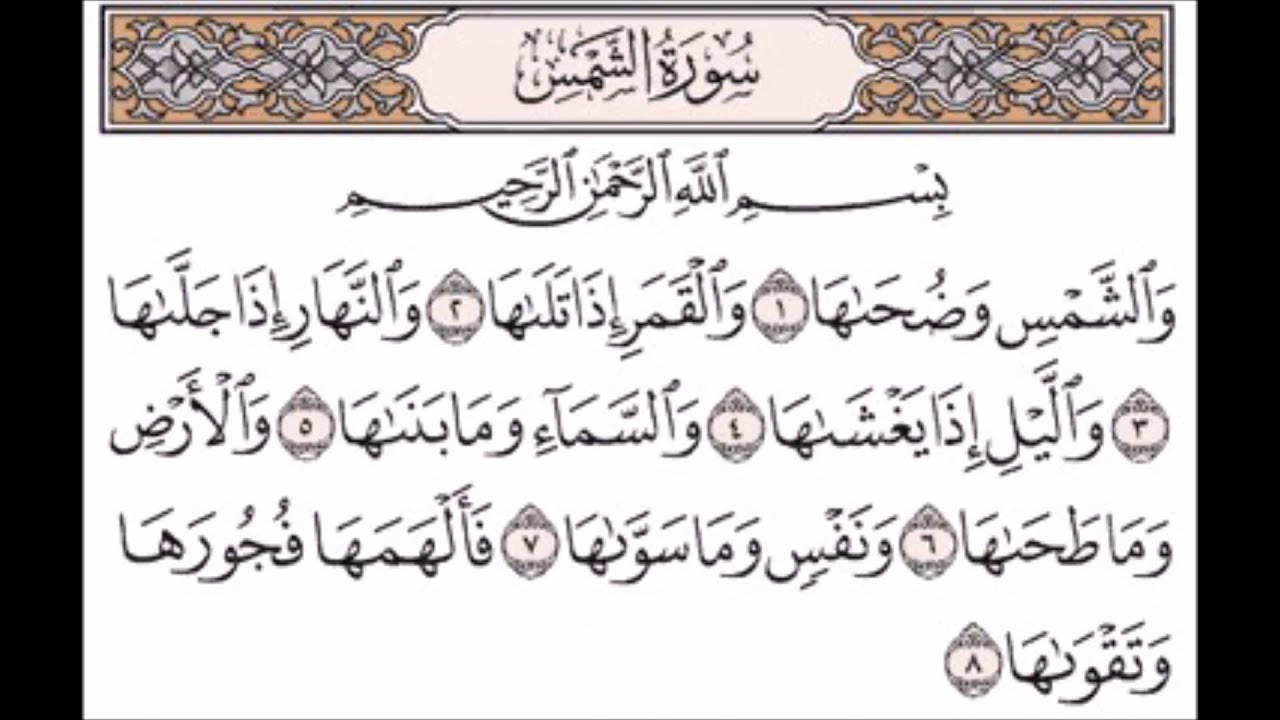 سُورَةُ الشَّمْسِ
بِسْمِ ٱللَّهِ ٱلرَّحْمَٰنِ ٱلرَّحِيمِ
وَٱلشَّمْسِ وَضُحَىٰهَا ١ وَٱلْقَمَرِ إِذَا تَلَىٰهَا ٢ وَٱلنَّهَارِ إِذَا جَلَّىٰهَا
٣ وَٱلَّيْلِ إِذَا يَغْشَىٰهَا ٤ وَٱلسَّمَآءِ وَمَا بَنَىٰهَا ٥ وَٱلْأَرْضِ
وَمَا طَحَىٰهَا ٦ وَنَفْسٍ وَمَا سَوَّىٰهَا ٧ فَأَلْهَمَهَا فُجُورَهَا
وَتَقْوَىٰهَا ٨